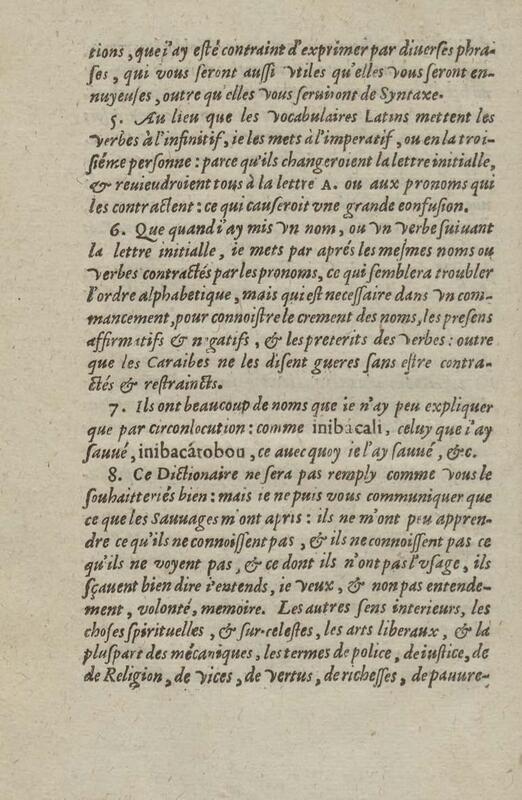 tions, que i'ay esté contraint d'exprimer par diuerses phra-
ses, qui vous seront aussi vtiles qu'elles vous seront en-
nuyeuses, outre qu'elles vous seruiront de Syntaxe.
5. Au lieu que les vocabulaires Latins mettent les
verbes à l'infinitif, ie les mets à l'imperatif, ou en la troi-
siéme personne: parce qu'ils changeroient la lettre initialle,
& reuieudroient tous à la lettre A. ou aux pronoms qui
les contractent: ce qui causeroit vne grande eonfusion.
6. Que quand i'ay mis vn nom, ou vn verbe suiuant
la lettre initialle, ie mets par aprés les mesmes noms ou
verbes contractés par les pronoms, ce qui semblera troubler
l'ordre alphabetique, mais qui est necessaire dans vn com-
mancement, pour connoistre le crement des noms, les presens
affirmatifs & negatifs, & les preterits des verbes: outre
que les Caraibes ne les disent gueres sans estre contra-
ctés & restraincts.
7. Ils ont beaucoup de noms que ie n'ay peu expliquer
que par circonlocution: comme inibacali, celuy que i'ay
sauué, inibacátobou, ce auec quoy ie l'ay sauué, &c.
8. Ce Dictionaire ne sera pas remply comme vous le
souhaitteriés bien: mais ie ne puis vous communiquer que
ce que les Sauuages m'ont apris: ils ne m'ont peu appren-
dre ce qu'ils ne connoissent pas, & ils ne connoissent pas ce
qu'ils ne voyent pas, & ce dont ils n'ont pas l'vsage, ils
sçauent bien dire i'entends, ie veux, & non pas entende-
ment, volonté, memoire. Les autres sens interieurs, les
choses spirituelles, & sur-celestes, les arts liberaux, & la
pluspart des mécaniques, les termes de police, de iustice, de
de Religion, de vices, de vertus, de richesses, de pauure-